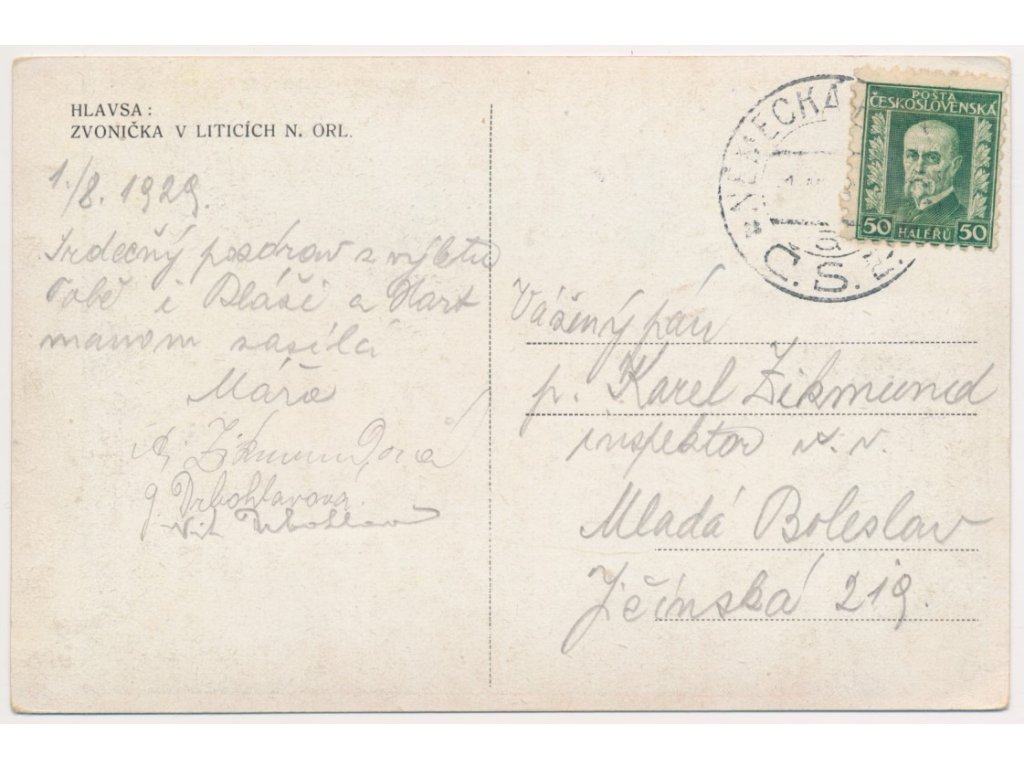 HLAVSA:
ZVONIČKA V LITICÍCH N. ORL.
1./8. 1929.
Srdečný pozdrav z výletu
Tobě i Bláši a Hart
manom zasílá
Máňa
A. Zikmundová
J. Vrbohlavova
Vrbohlav
NĚMECKÁ
Č.S.R.
POŠTA
ČESKOSLOVENSKÁ
50 HALÉŘŮ 50
Vážený pán
p. Karel Zikmund
inspektor v. v.
Mladá Boleslav
Jičínská 219.